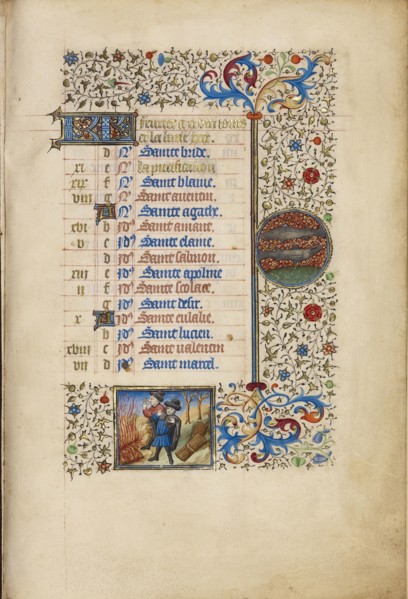 KL feurier a xxviii iours
et la lune xxix.
d N Sainte bride.
xi e N la purificacion
xix f N Saint blaiue.
viii g N Saint auentin.
A N Sainte agathe.
xvi b id Saint amant.
v c id Sainte elaine.
d id Saint salmon
xiii e id Sainte apoline
ii f id Sainte scolace.
g id Saint desir.
x A id Sainte eulalie.
b id Saint lucien.
xviii c id Saint valentin
vii d id Saint marcel.